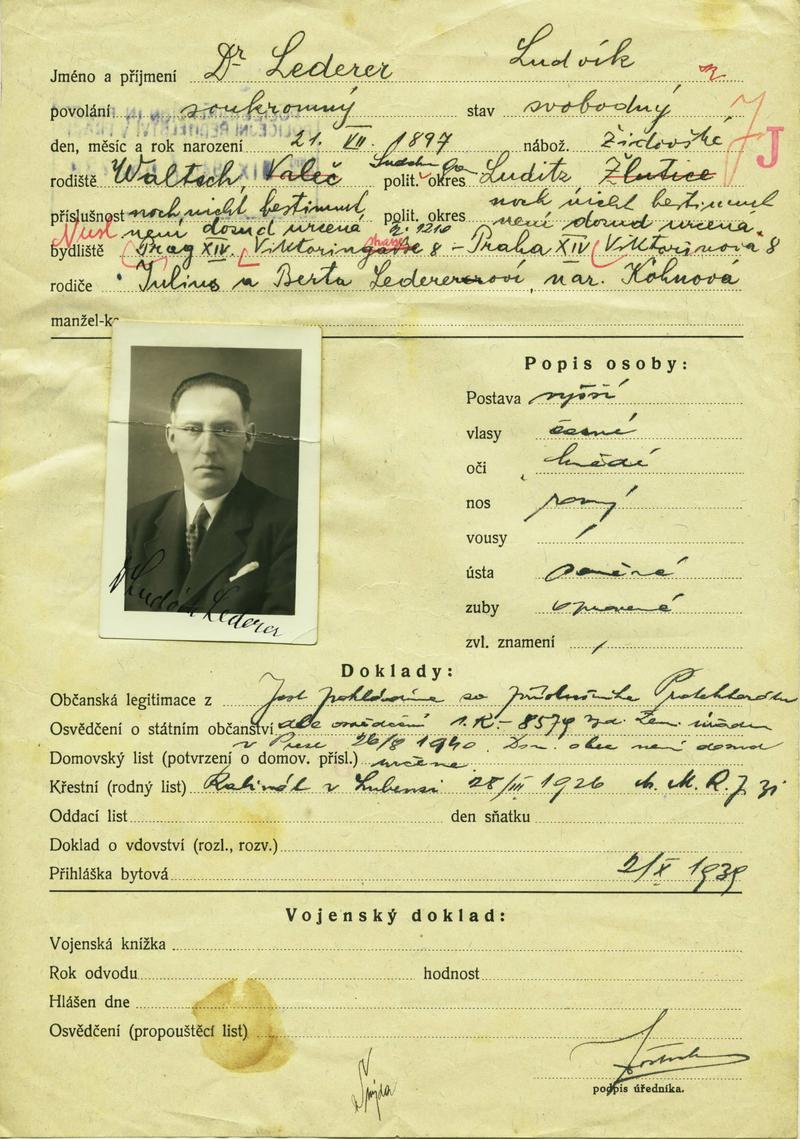 Jméno a příjmení Dr Lederer Ludvík
povolání soukromný stav svobodný
den, měsíc a rok narození 21. VII. 1897 nábož. Židovské J
rodiště Waltsch, Valeč polit. okres Luditz, Žlutice
noch nicht bestimmt
příslušnost noch nicht bestimmt polit. okres není domud určená.
Nusl není domud určená č. 1210
bydliště Prag XIV. Viktoringasse 8 – Praha XIV Viktorinova 8
rodiče Julius a Berta Ledererovi, nar. Kohnová
manžel-k
Popis osoby:
Postava vyšší
vlasy černé
oči hnědé
nos rovný
vousy /
ústa souměrná
zuby opravené
zvl. znamení /
Dr Ludvík Lederer
Doklady:
Občanská legitimace z Jest pokládán za příslušníka Protektorátu
Osvědčení o státním občanství dle osvědčení 1.K.-8579 zem. úřadu
v Praze 26/8 1940. Dom. obec není domud
Domovský list (potvrzení o domov. přísl.) určena.
Křestní (rodný list) Rabinát v Lubenci 28/III 1926
Oddací list den sňatku
Doklad o vdovství (rozl., rozv.)
Přihláška bytová 2/X 1939
Vojenský doklad:
Vojenská knížka
Rok odvodu hodnost
Hlášen dne
Osvědčení (propouštěcí list)
podpis úředníka.